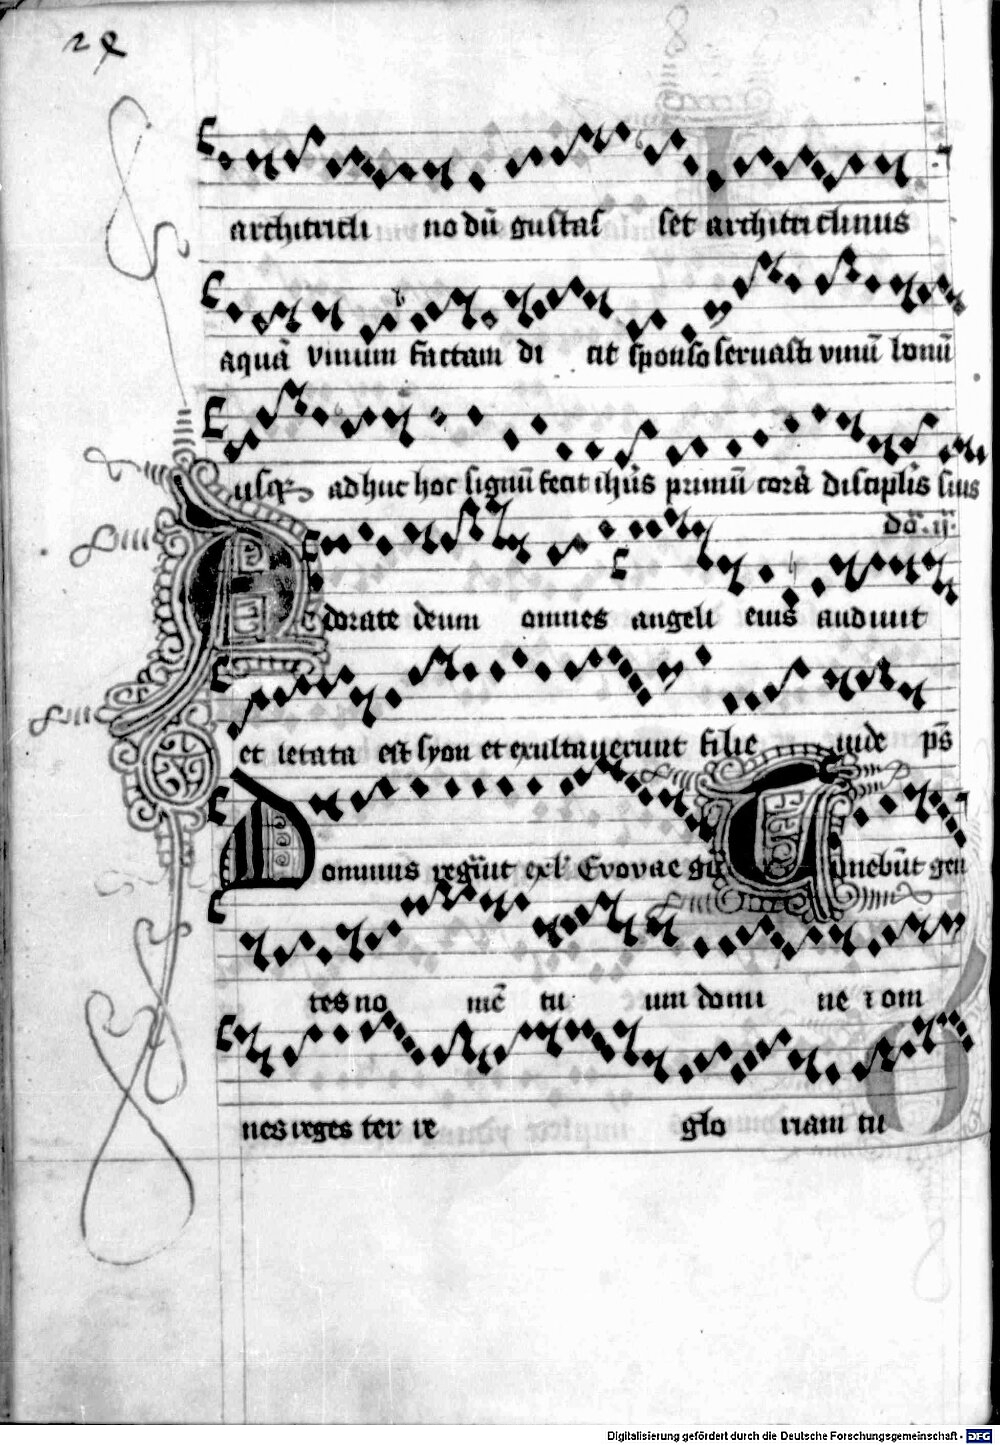 architricli no dū gustas set architriclinus
aquā vinum factam di cit sponso seruasti vinū bonū
usq adhuc hoc signū fecit ihūs primū corā discipl'is suis
dā. ij.
Adorate deum omnes angeli eius audiuit
et letata est syon et exultauerunt filie iude ps̄
Dominus regnāuit exl' Evovae Timebūt gen
tes no mē tu um domi ne z om
nes reges ter re glo riam tu
Digitalisierung gefördert durch die Deutsche Forschungsgemeinschaft - DFG